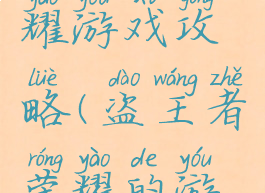 yào yóu xì gōng
耀游戏攻
lüè dào wáng zhě
略(盗王者
róng yào de yóu
荣耀的游